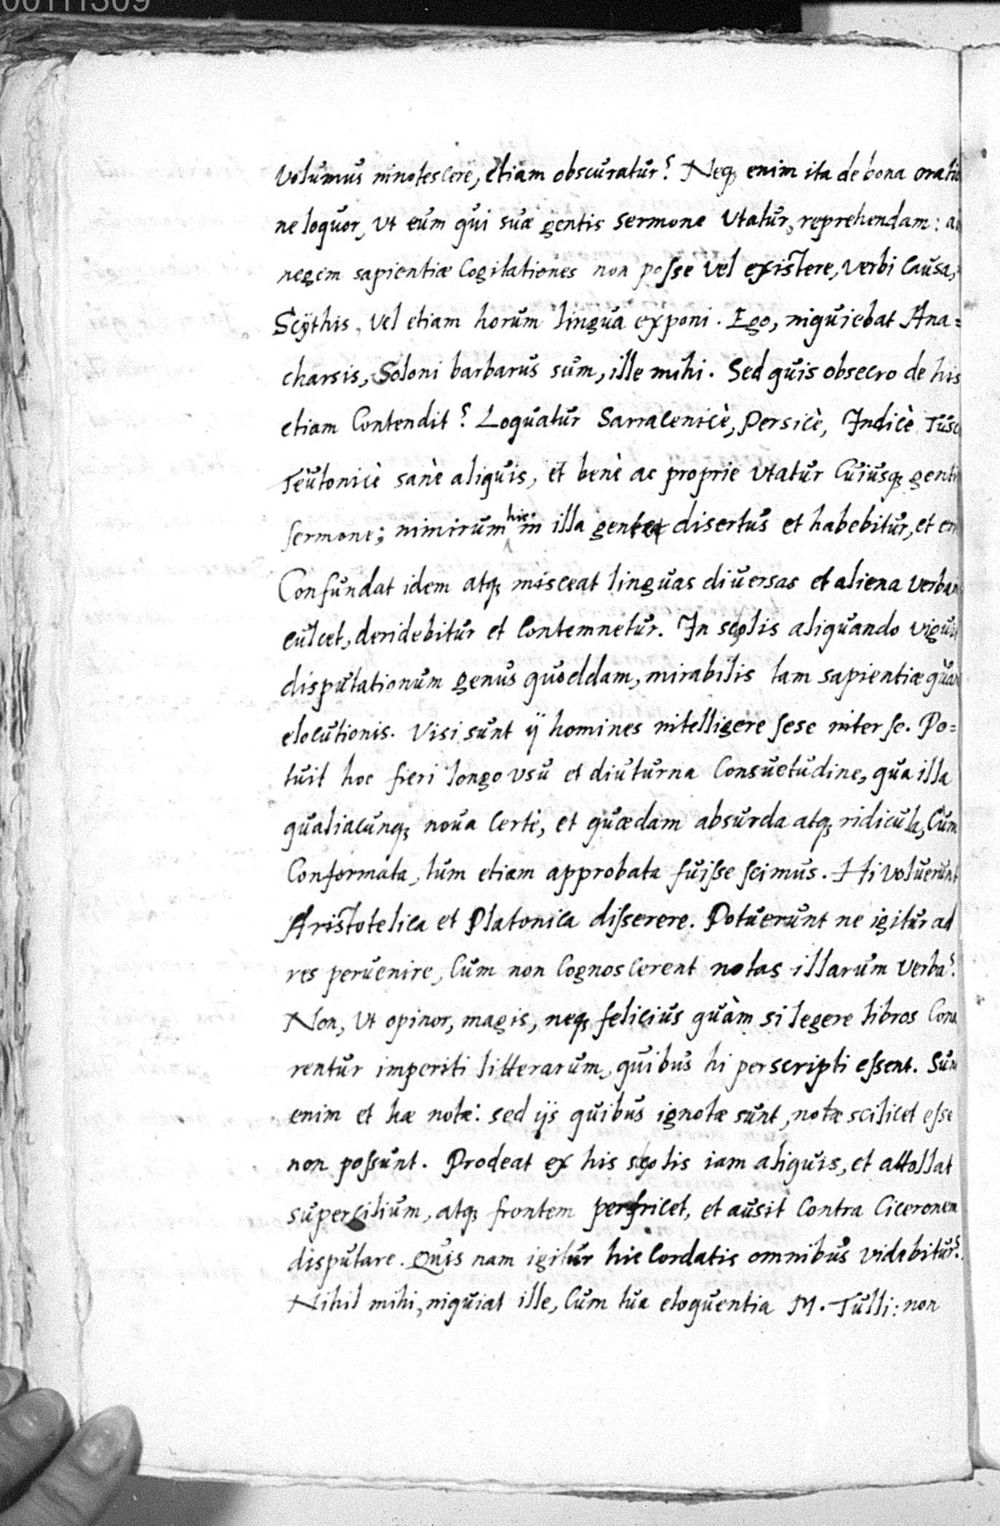 00111309
volumus innotescere, etiam obscuratur? Neq; enim ita de bona oratio
ne loquor, ut eum qui suæ gentis sermone utatur, reprehendam: a
negem sapientiæ cogitationes non posse vel existere, verbi causa,
Scythis, vel etiam horum lingua exponi. Ego, inquiebat Ana=
charsis, Soloni barbarus sum, ille mihi. Sed quis obsecro de his
etiam contendit? Loquatur Sarracenicè, Persicè, Indicè Tusc
Teutonicè sanè aliquis, et benè ac proprie utatur cuiusq; genti
sermone; nimirum hic in illa gente disertus et habebitur, et er
Confundat idem atq; misceat linguas diversas et aliena verba in
culcet, deridebitur et contemnetur. In scolis aliquando viguit
disputationum genus quoddam, mirabilis tam sapientiæ quam
elocutionis. Visi sunt ij homines intelligere sese inter se. Po=
tuit hoc fieri longo usu et diuturna consuetudine, qua illa
qualiacunq; nova certè, et quædam absurda atq; ridicula, cum
conformata, tum etiam approbata fuisse scimus. Hi voluerunt
Aristotelica et Platonica disserere. Potuerunt ne igitur ad
res pervenire, cum non cognoscerent notas illarum verba?
Non, ut opinor, magis, neq; felicius quàm si legere libros cona
rentur imperiti litterarum, quibus hi perscripti essent. Sun
enim et hæ notæ: sed ijs quibus ignotæ sunt, notæ scilicet esse
non possunt. Prodeat ex his scolis iam aliquis, et attollat
supercilium, atq; frontem perfricet, et ausit contra Ciceronem
disputare. Quis nam igitur hic cordatis omnibus videbitur?
Nihil mihi, inquiat ille, cum tua eloquentia M. Tulli: non